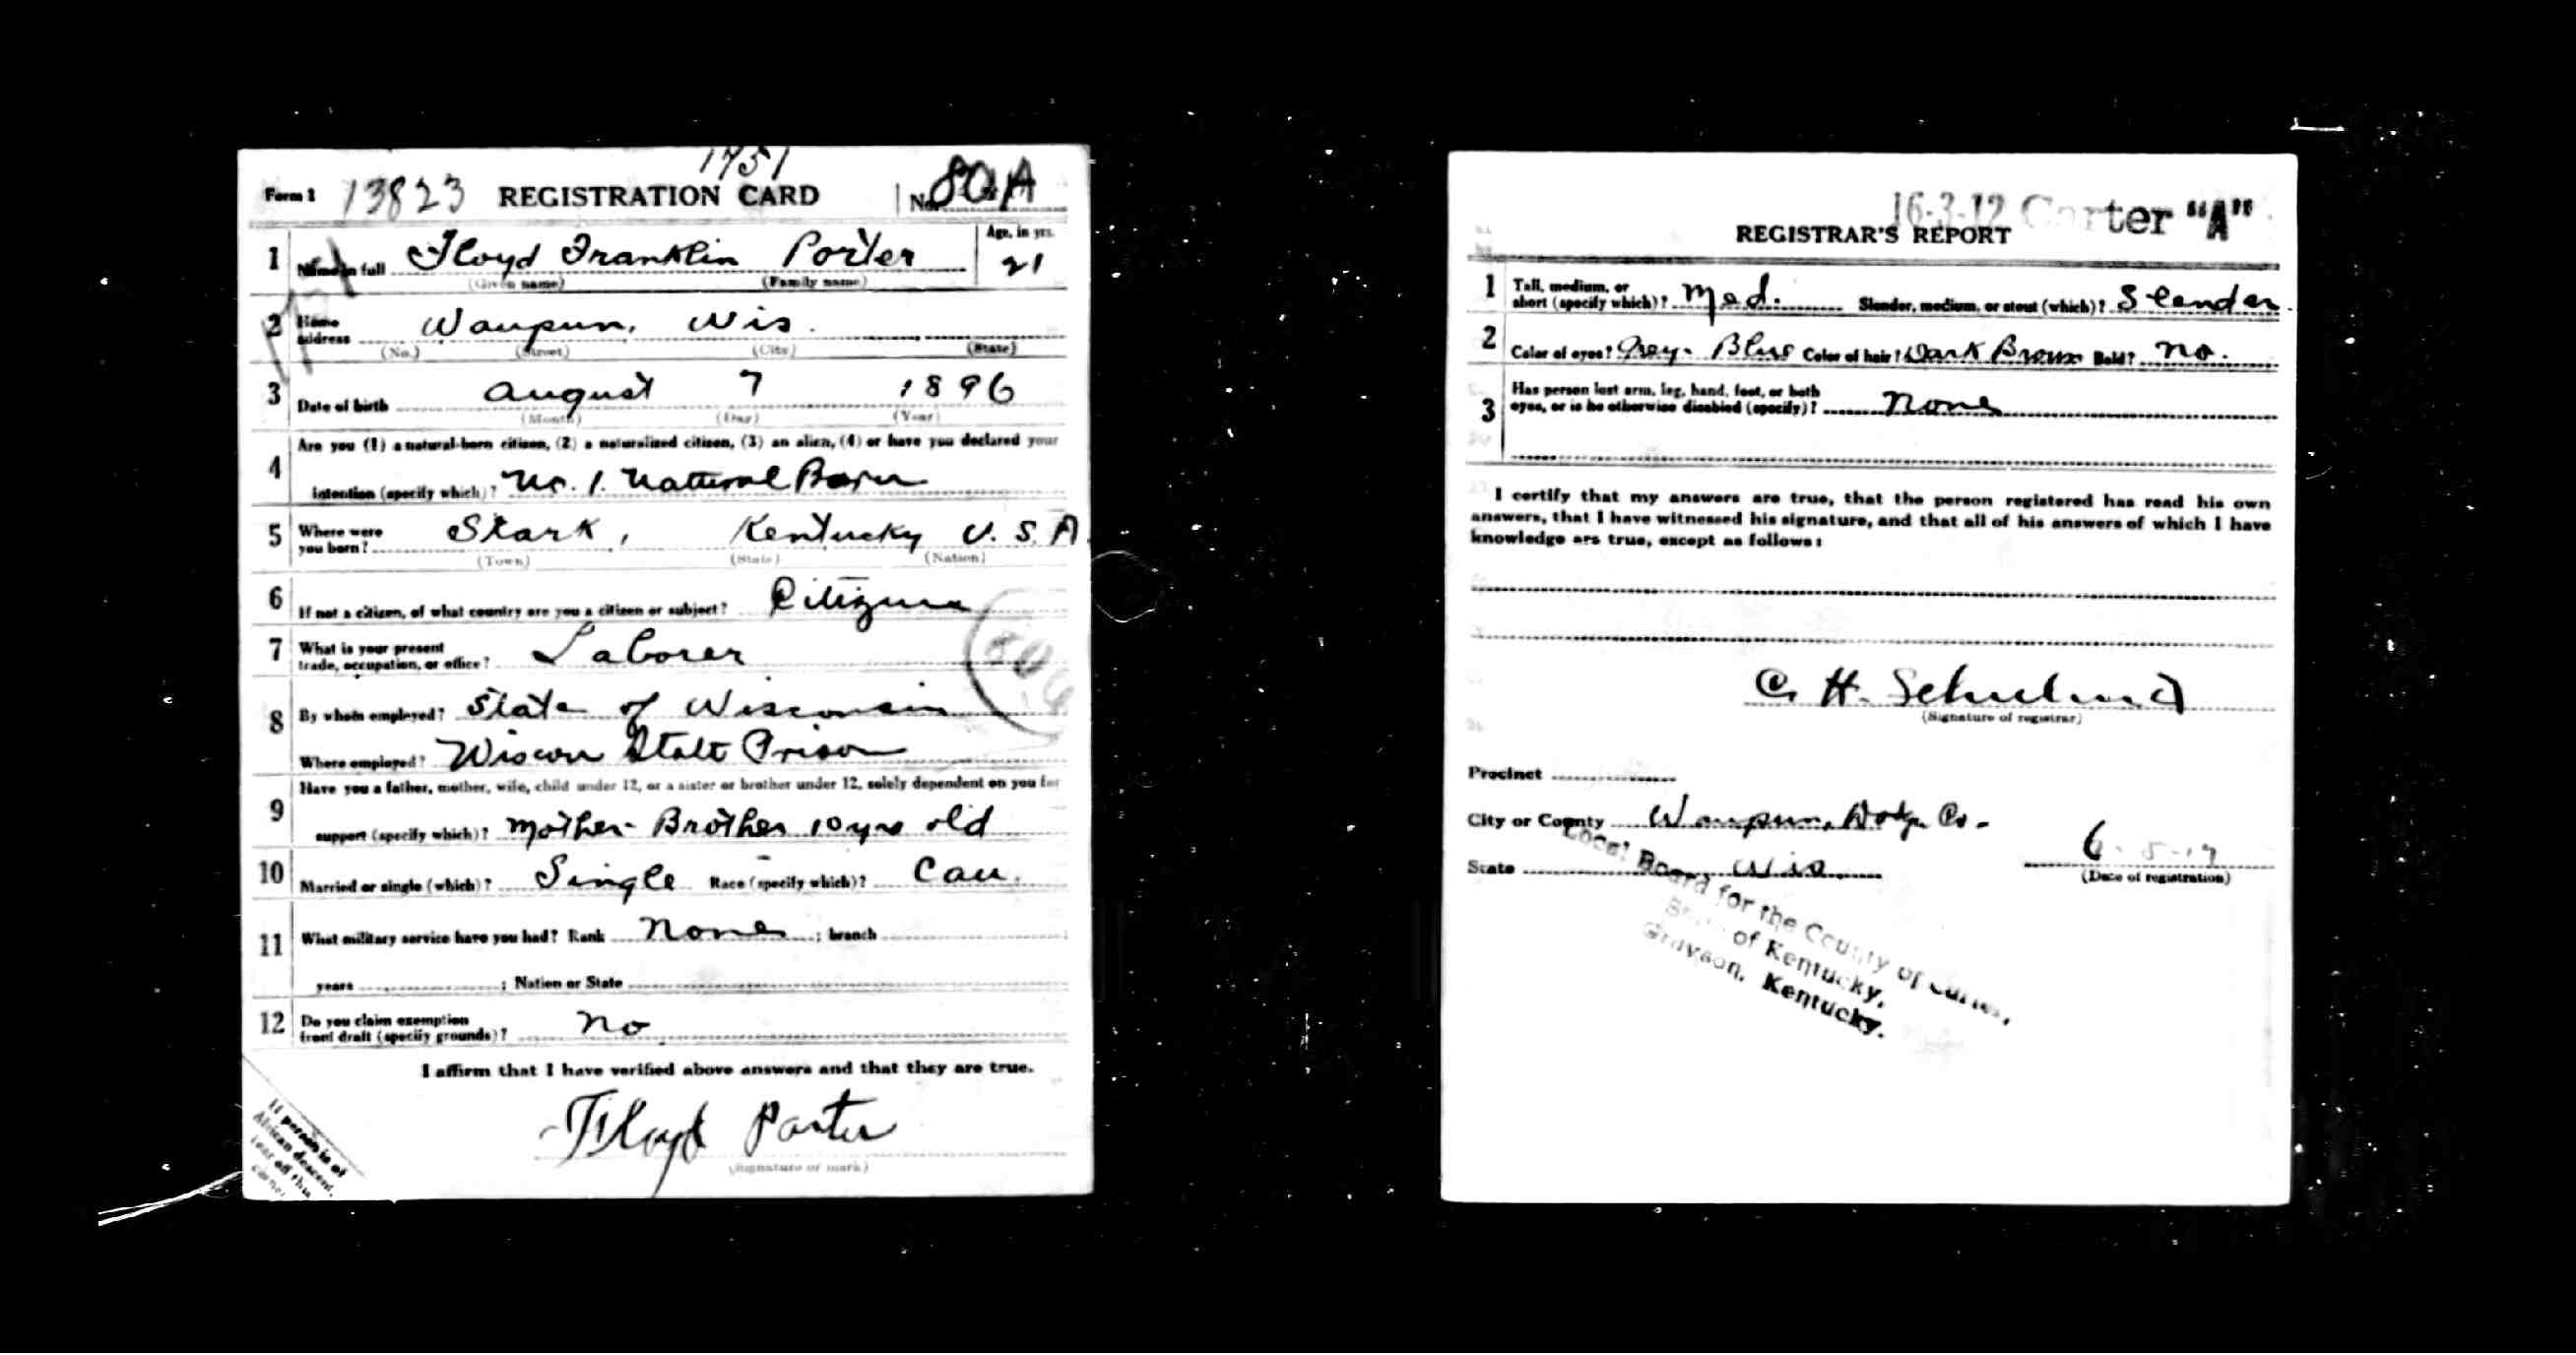 1751
Form 1 13823 REGISTRATION CARD No. 80A
1 Name in full Floyd Franklin Porter Age, in yrs. 21
(Given name) (Family name)
2 Home address Waupun, Wis.
(No.) (Street) (City) (State)
3 Date of birth August 7 1896
(Month) (Day) (Year)
Are you (1) a natural-born citizen, (2) a naturalized citizen, (3) an alien, (4) or have you declared your
4 intention (specify which)? No. 1. Natural Born
5 Where were you born? Stark, Kentucky U.S.A.
(Town) (State) (Nation)
6 If not a citizen, of what country are you a citizen or subject? Citizen
7 What is your present trade, occupation, or office? Laborer
8 By whom employed? State of Wisconsin
Where employed? Wiscon State Prison
9 Have you a father, mother, wife, child under 12, or a sister or brother under 12, solely dependent on you for
support (specify which)? Mother - Brother 10 yrs old
10 Married or single (which)? Single Race (specify which)? Cau.
11 What military service have you had? Rank None ; branch
years ; Nation or State
12 Do you claim exemption from draft (specify grounds)? No
I affirm that I have verified above answers and that they are true.
Floyd Porter
(Signature or mark)
If person is of
African descent,
tear off this
corner
16-3-12 Carter "A"
REGISTRAR'S REPORT
1 Tall, medium, or short (specify which)? Med. Slender, medium, or stout (which)? Slender
2 Color of eyes? Grey-Blue Color of hair? Dark Brown Bald? No.
3 Has person lost arm, leg, hand, foot, or both eyes, or is he otherwise disabled (specify)? None
I certify that my answers are true, that the person registered has read his own
answers, that I have witnessed his signature, and that all of his answers of which I have
knowledge are true, except as follows:
C. H.
(Signature of registrar)
Precinct
City or County Waupun, Dodge Co.
State Wis. 6-5-17
(Date of registration)
Local Board for the County of Carter,
State of Kentucky,
Grayson, Kentucky.